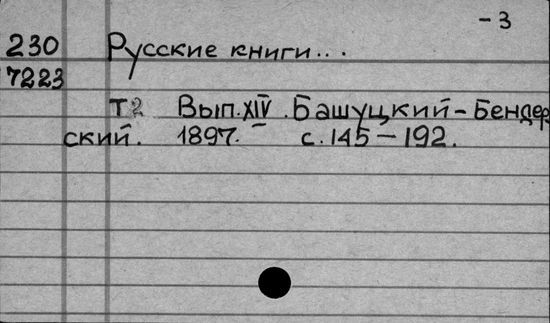 -3
230 Русские книги...
7223
Т2 Вып. XIV. Башуцкий-Бендер
ский. 1897. с. 145-192.